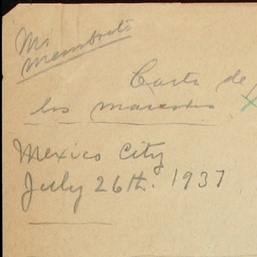 Mr.
Membrete
Carta de
los maestros
Mexico City
July 26th. 1937